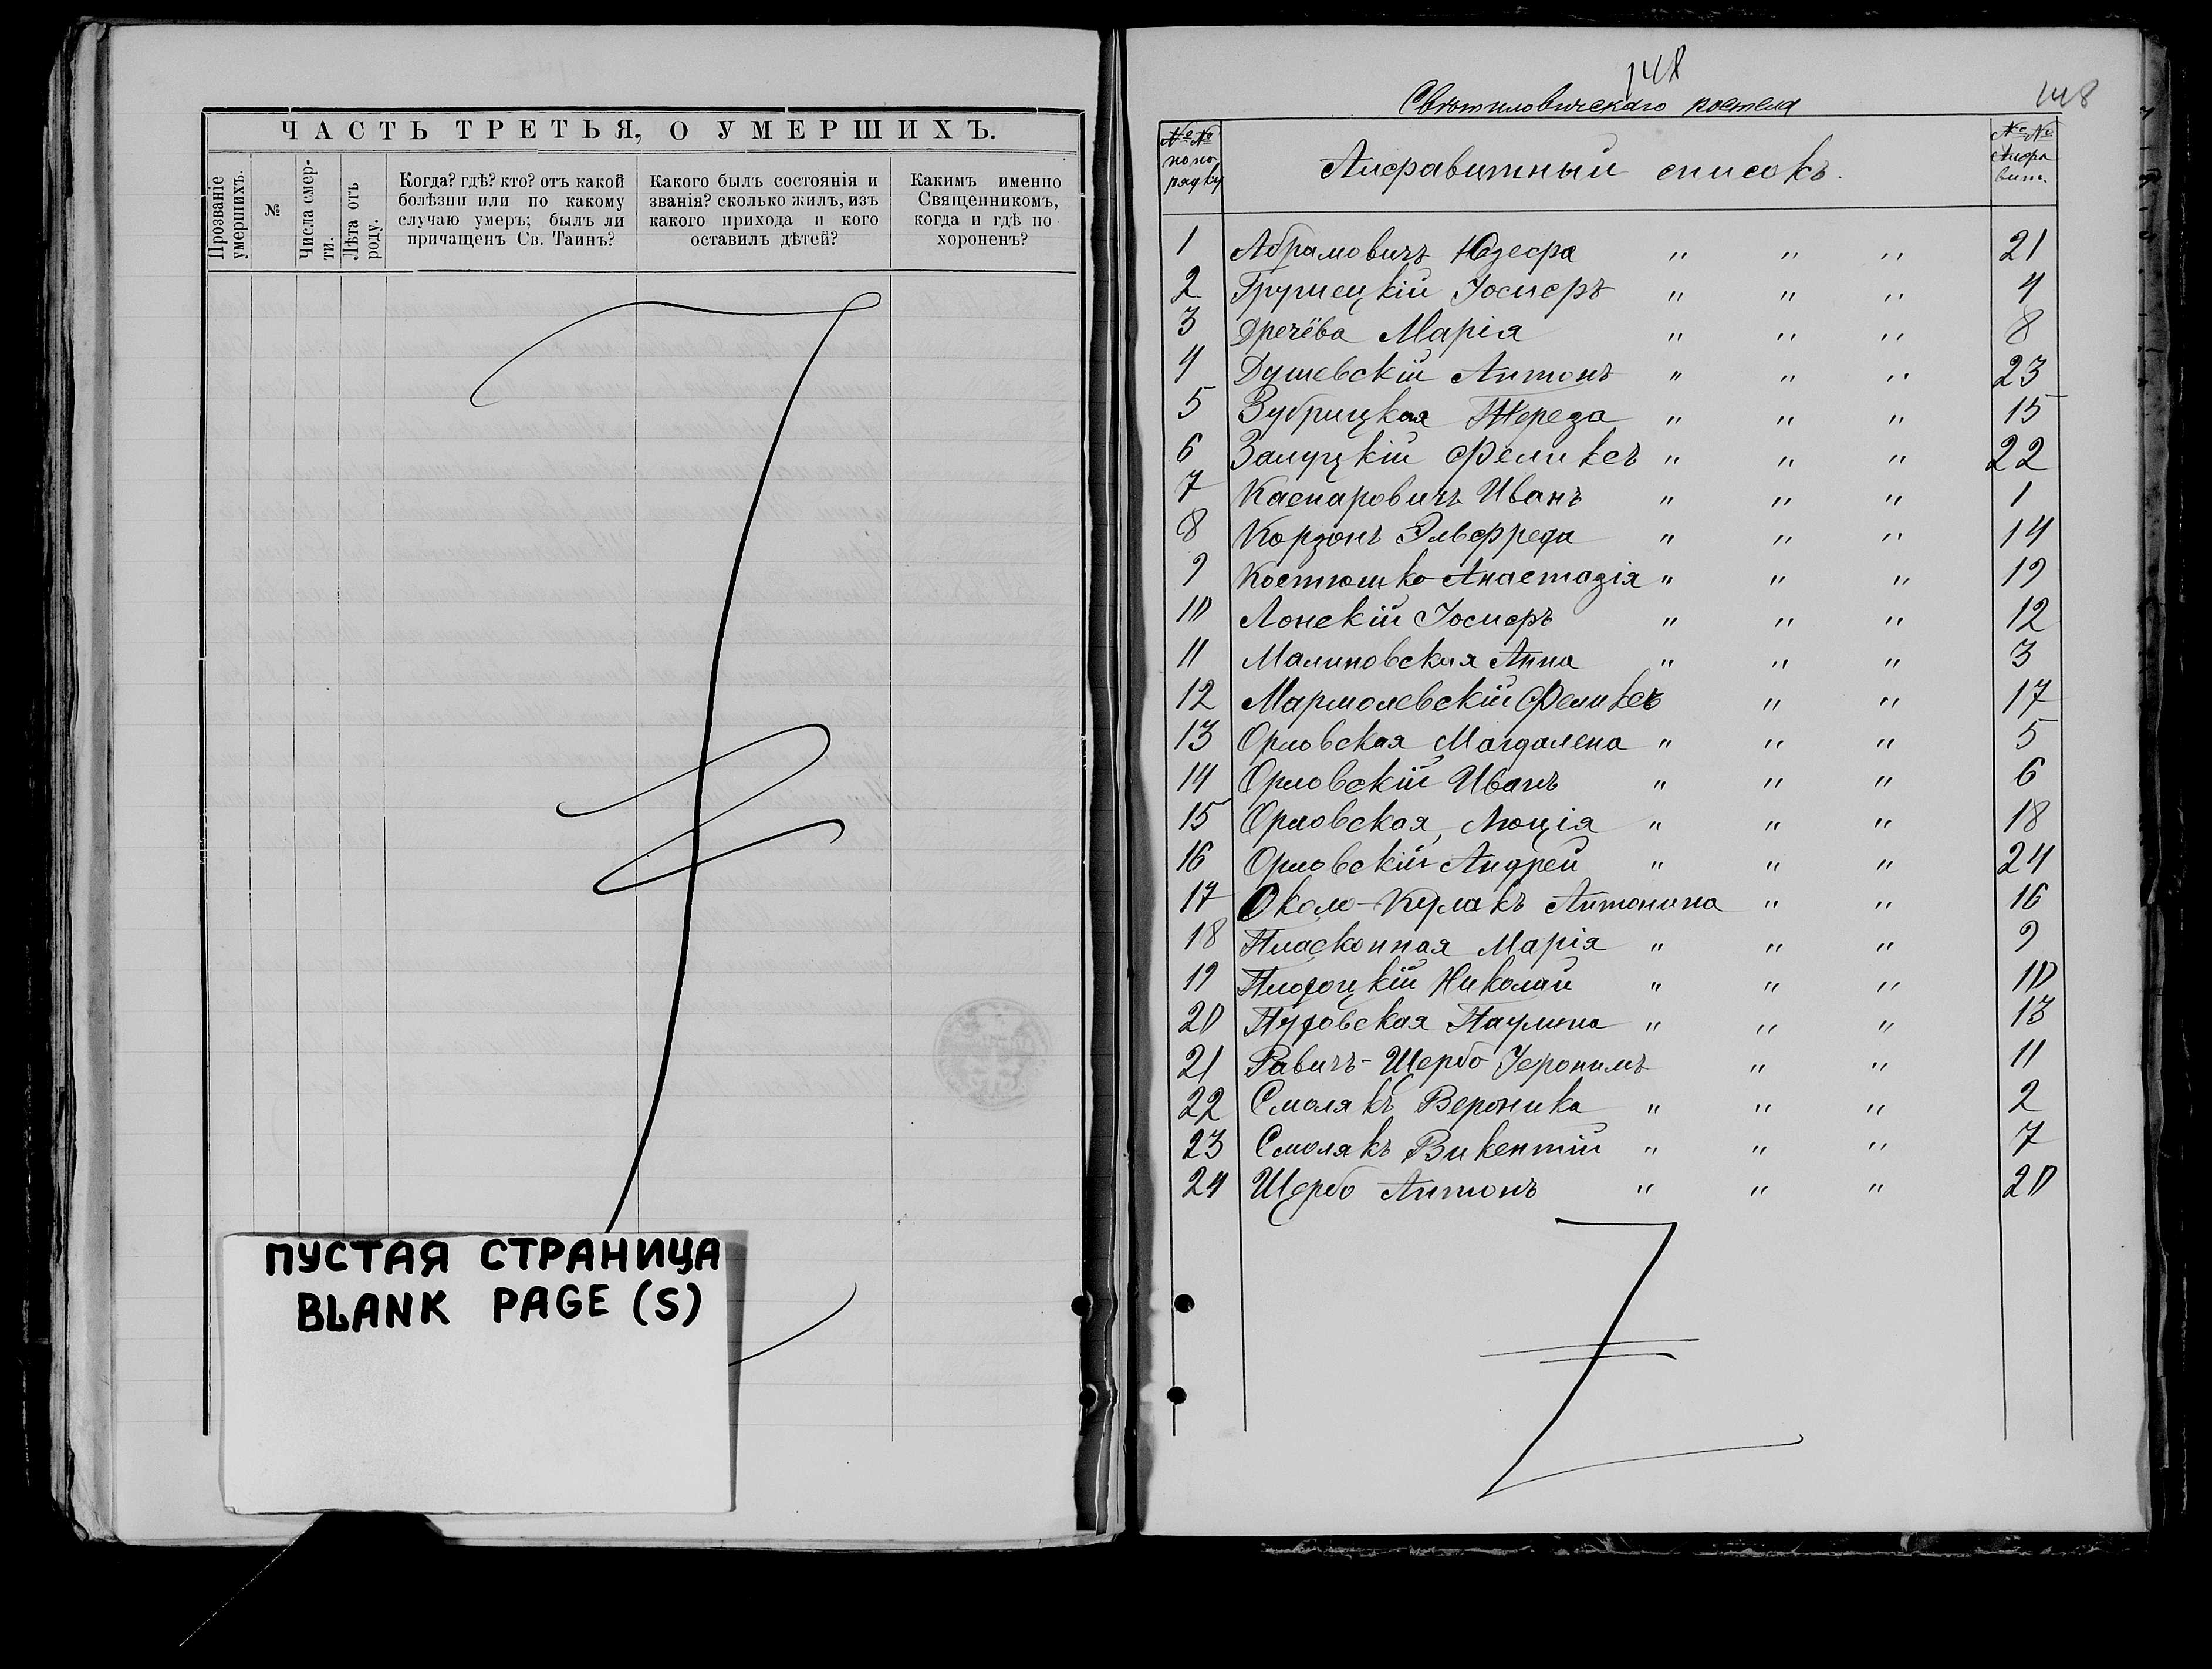 ЧАСТЬ ТРЕТЬЯ, О УМЕРШИХЪ.
Прозваніе умершихъ.
№
Числа смерти.
Лѣта отъ роду.
Когда? гдѣ? кто? отъ какой
болѣзни или по какому
случаю умеръ; былъ ли
причащенъ Св. Таинъ?
Какого былъ состоянія и
званія? сколько жилъ, изъ
какого прихода и кого
оставилъ дѣтей?
Какимъ именно
Священникомъ,
когда и гдѣ по-
хороненъ?
ПУСТАЯ СТРАНИЦА
BLANK PAGE (S)
148
148
Свѣтиловическаго костела
№№ по порядку
Алфавитный списокъ.
№№
1 Абрамовичъ Юзефа " " " 21
2 Грушецкій Іосифъ " " " 4
3 Дречёва Марія " " " 8
4 Душевскій Антонъ " " " 23
5 Зубрицкая Тереза " " " 15
6 Залуцкій Феликсъ " " " 22
7 Каспаровичъ Иванъ " " " 1
8 Корзонъ Эльфреда " " " 14
9 Костюшко Анастазія " " " 19
10 Лонскій Іосифъ " " " 12
11 Малиновская Анна " " " 3
12 Мармолевскій Феликсъ " " 17
13 Орловская Магдалена " " " 5
14 Орловскій Иванъ " " " 6
15 Орловская Люція " " " 18
16 Орловскій Андрей " " " 24
17 Около-Кулакъ Антонина " " 16
18 Пласконная Марія " " " 9
19 Николай " " " 10
20 Паулина " " " 13
21 Равичъ-Щербо Іеронимъ " " 11
22 Смолякъ Вероника " " " 2
23 Смолякъ Викентій " " " 7
24 Щербо Антонъ " " " 20